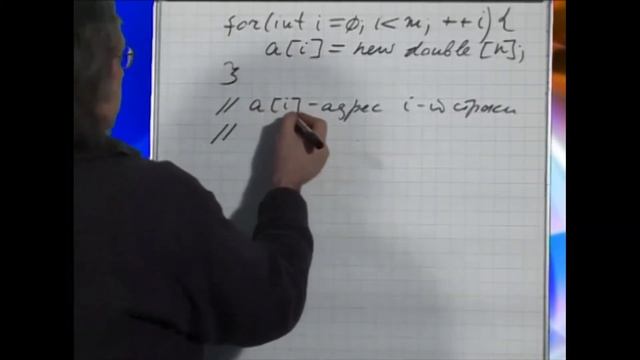 for(int i=0; i<m; ++i){
a[i]=new double[n];
}
// a[i]-адрес i-й строки
//